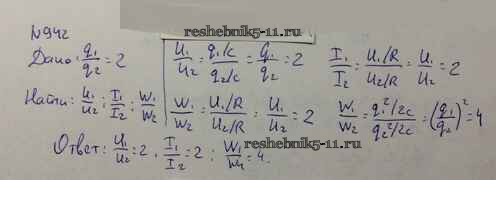 reshebnik5-11.ru
N942
Дано: q₁/q₂ = 2
Найти: U₁/U₂; I₁/I₂; W₁/W₂
U₁/U₂ = (q₁/c)/(q₂/c) = q₁/q₂ = 2
I₁/I₂ = (U₁/R)/(U₂/R) = U₁/U₂ = 2
W₁/W₂ = (U₁/R)/(U₂/R) = U₁/U₂ = 2
W₁/W₂ = (q₁²/2c)/(q₂²/2c) = (q₁/q₂)² = 4
Ответ: U₁/U₂ = 2, I₁/I₂ = 2; W₁/W₂ = 4.
reshebnik5-11.ru